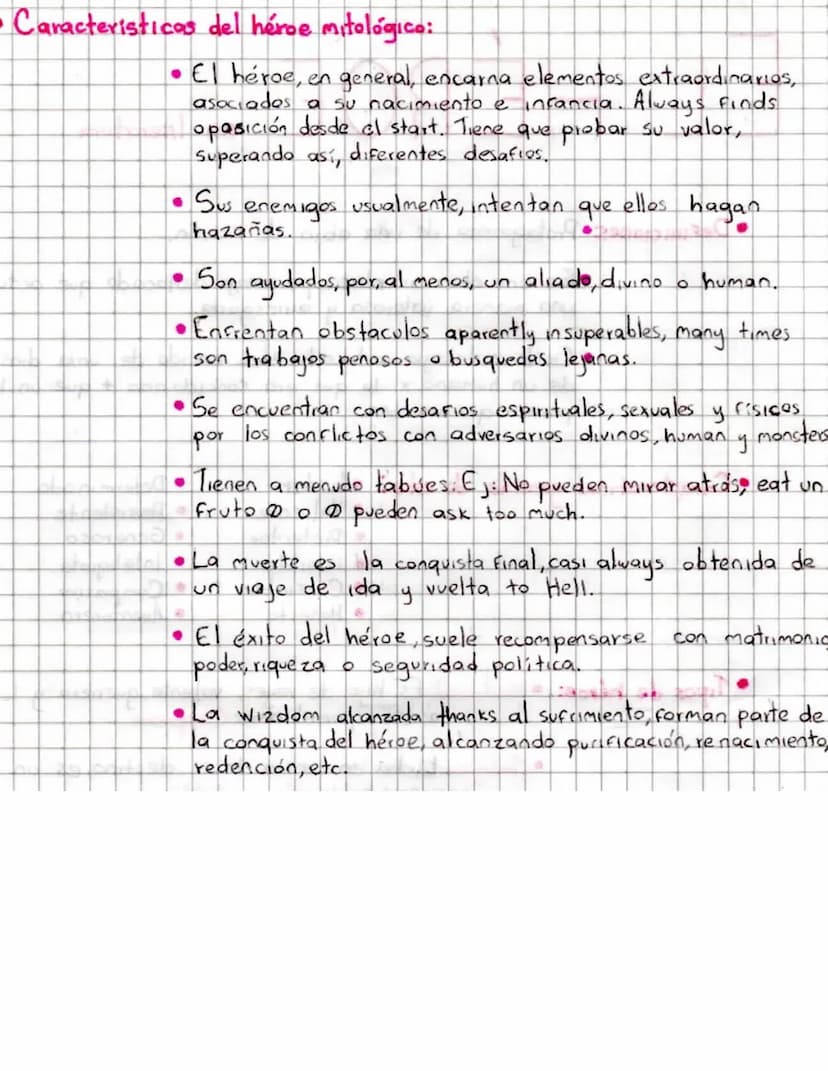 Características del héroe mitológico:
• El héroe, en general, encarna elementos extraordinarios,
asociados a su nacimiento e infancia. Always finds
oposición desde el start. Tiene que probar su valor,
superando así, diferentes desafíos.
• Sus enemigos usualmente, intentan que ellos hagan
hazañas.
• Son ayudados, por, al menos, un aliado, divino o human.
• Enfrentan obstaculos aparently insuperables, many times
son trabajos penosos o busquedas lejanas.
• Se encuentran con desafios espirituales, sexuales y físicos
por los conflictos con adversarios divinos, human y monsters
• Tienen a menudo tabues. Ej: No pueden mirar atrás, eat un
fruto o pueden ask too much.
• La muerte es la conquista final, casi always obtenida de
un viaje de ida y vuelta to Hell.
• El éxito del héroe, suele recompensarse con matrimonio
poder, riqueza o seguridad política.
• La wizdom alcanzada thanks al sufrimiento, forman parte de
la conquista del héroe, alcanzando purificación, renacimiento,
redención, etc.